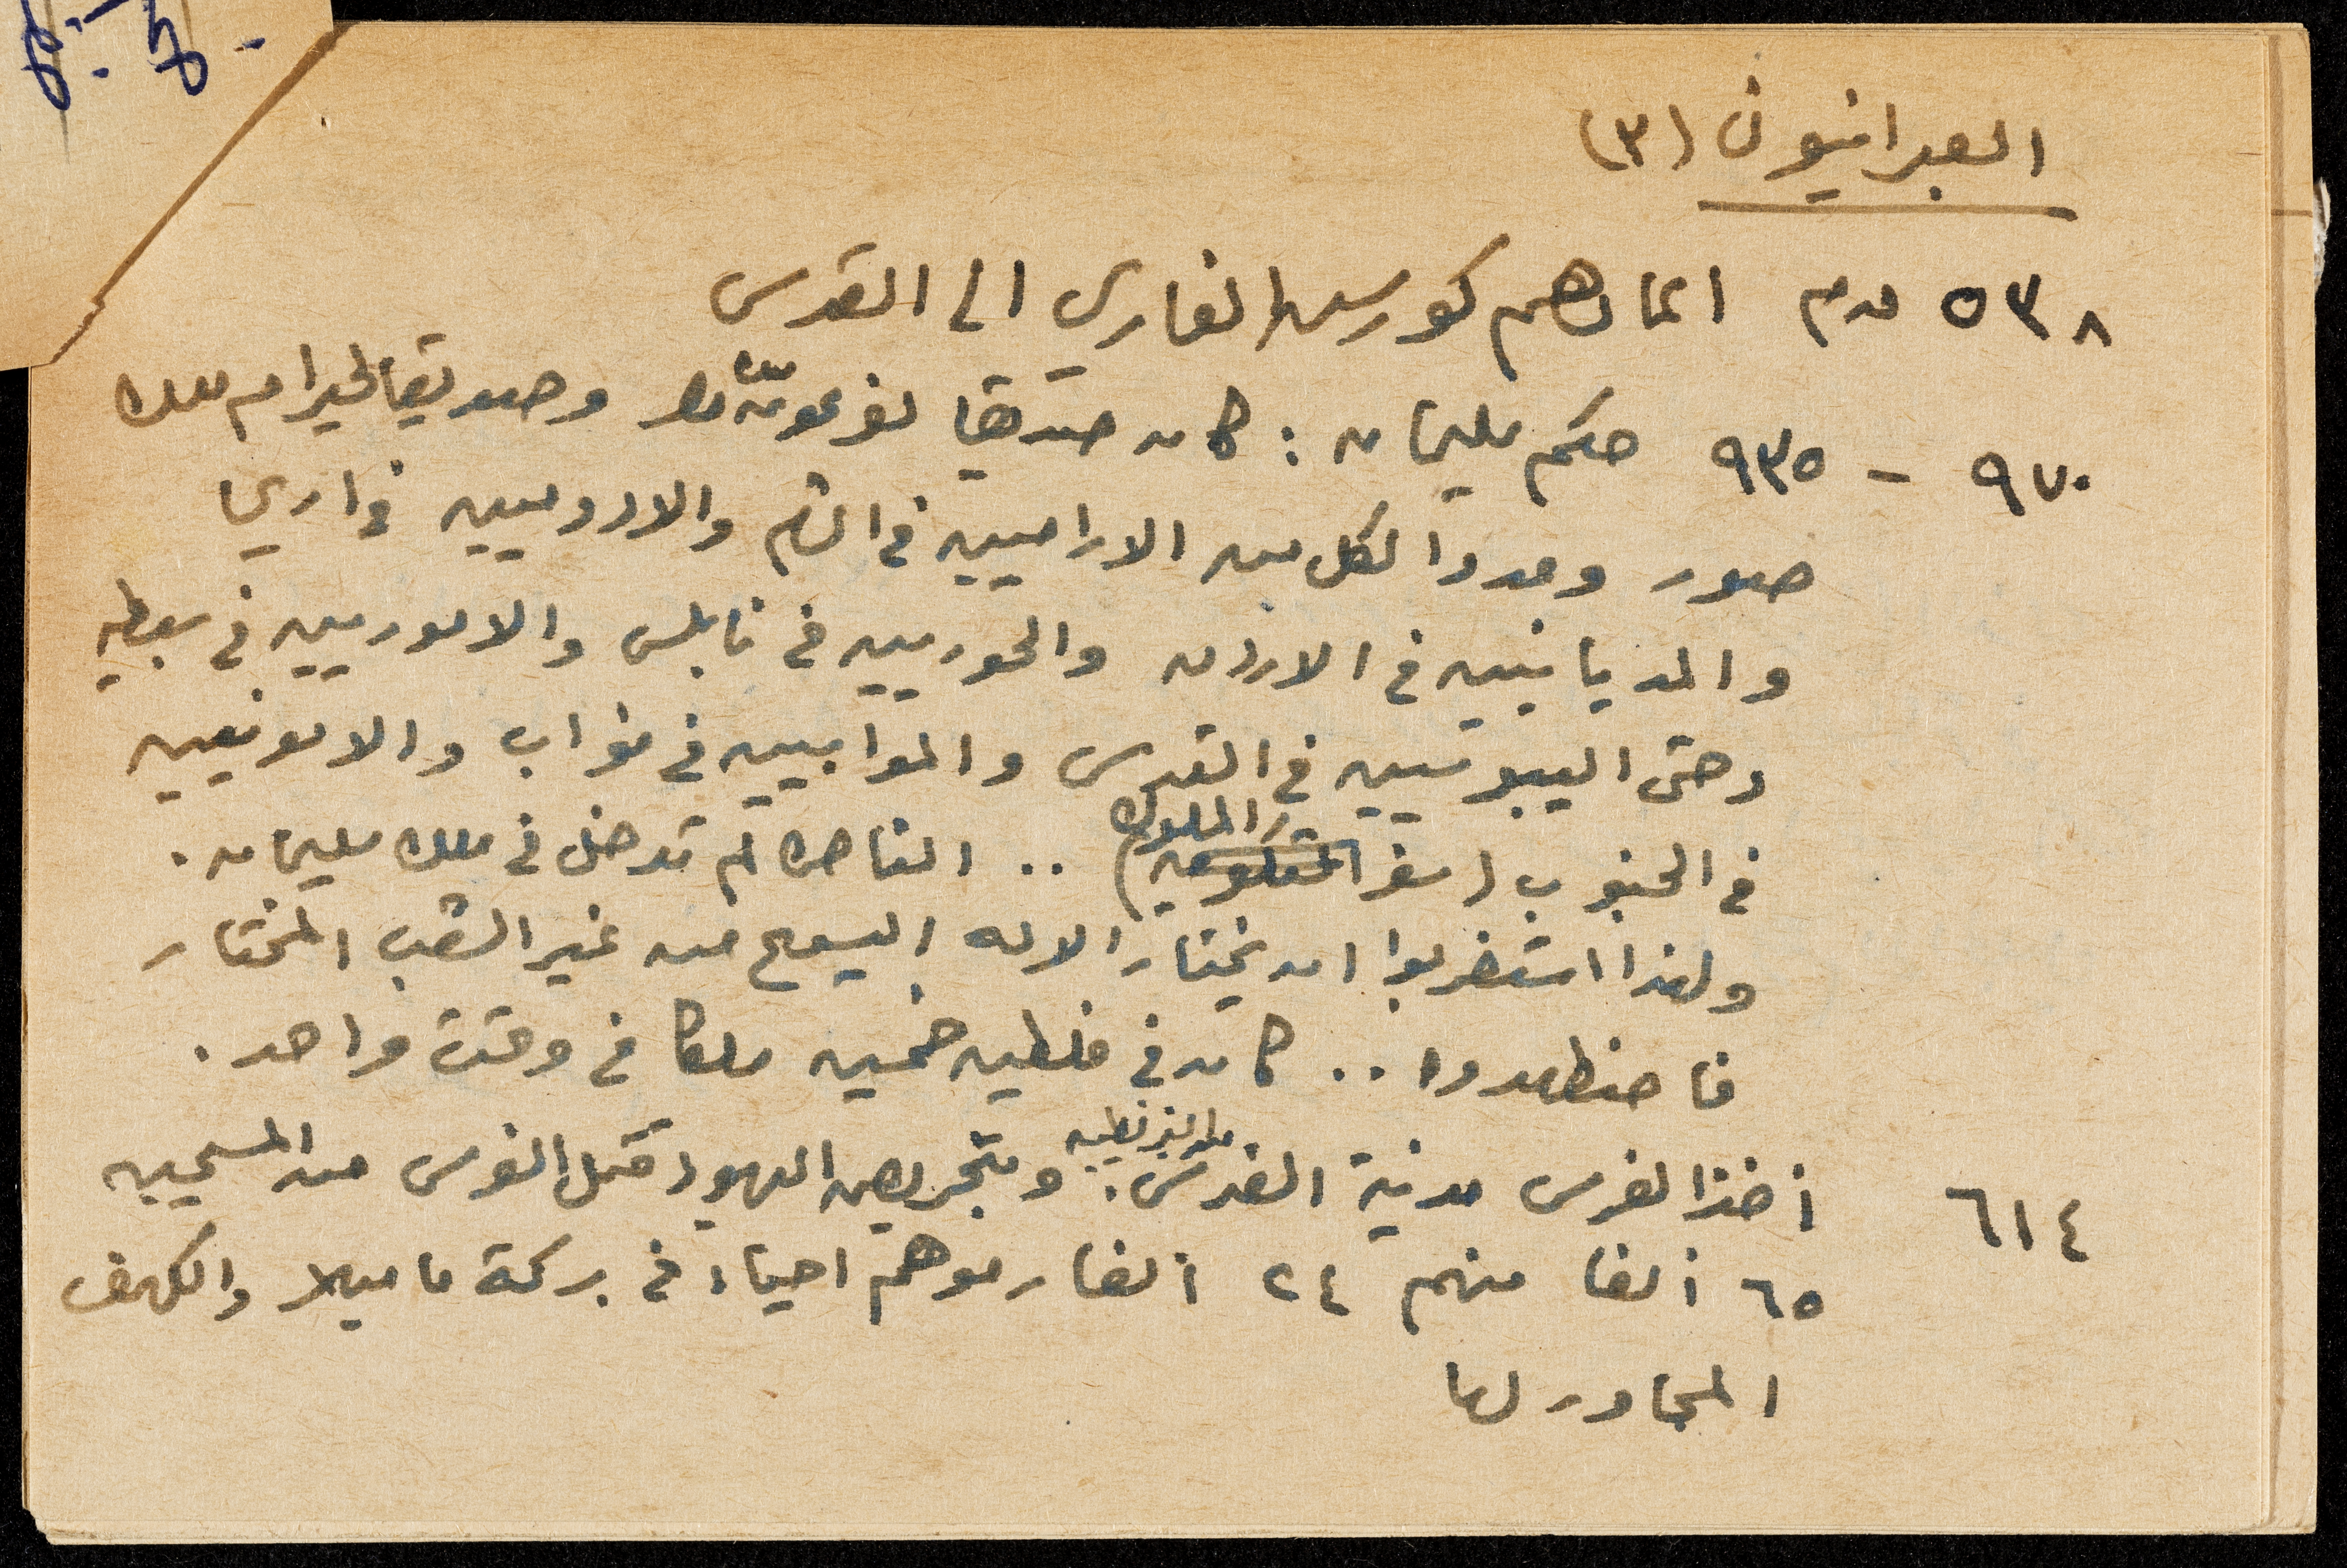 العبرانيون (٣)
٥٣٨ ق.م اعادهم كورس الفارسي الى القدس
٩٧٠ - ٩٣٥ حكم سليمان : كان صديقا لفرعون مصر وصديقا لحيرام ملك
صور وندوا لكل من الاراميين في الشام والادوميين في اريحا
والمديانيين في الاردن والحوريين في نابلس والاموريين في سبطيه
وحتى اليبوسيين في القدس والموابيين في مؤاب والامونيين
في الجنوب (سفر الملوك) .. الناصرة لم تدخل في ملك سليمان .
ولهذا استغربوا ان يختار الاله اليسوع من غير الشعب المختار
فاضطهدوا .. كان في فلسطين خمسين ملكا في وقت واحد .
٦١٤ أخذ الفرس مدينة القدس من البيزنطيين . وبتحريض اليهود قتل الفرس من المسيحيين
٦٥ ألفا منهم ٢٤ ألفا رموهم احياء في بركة ماميلا والكهف
المجاور لها